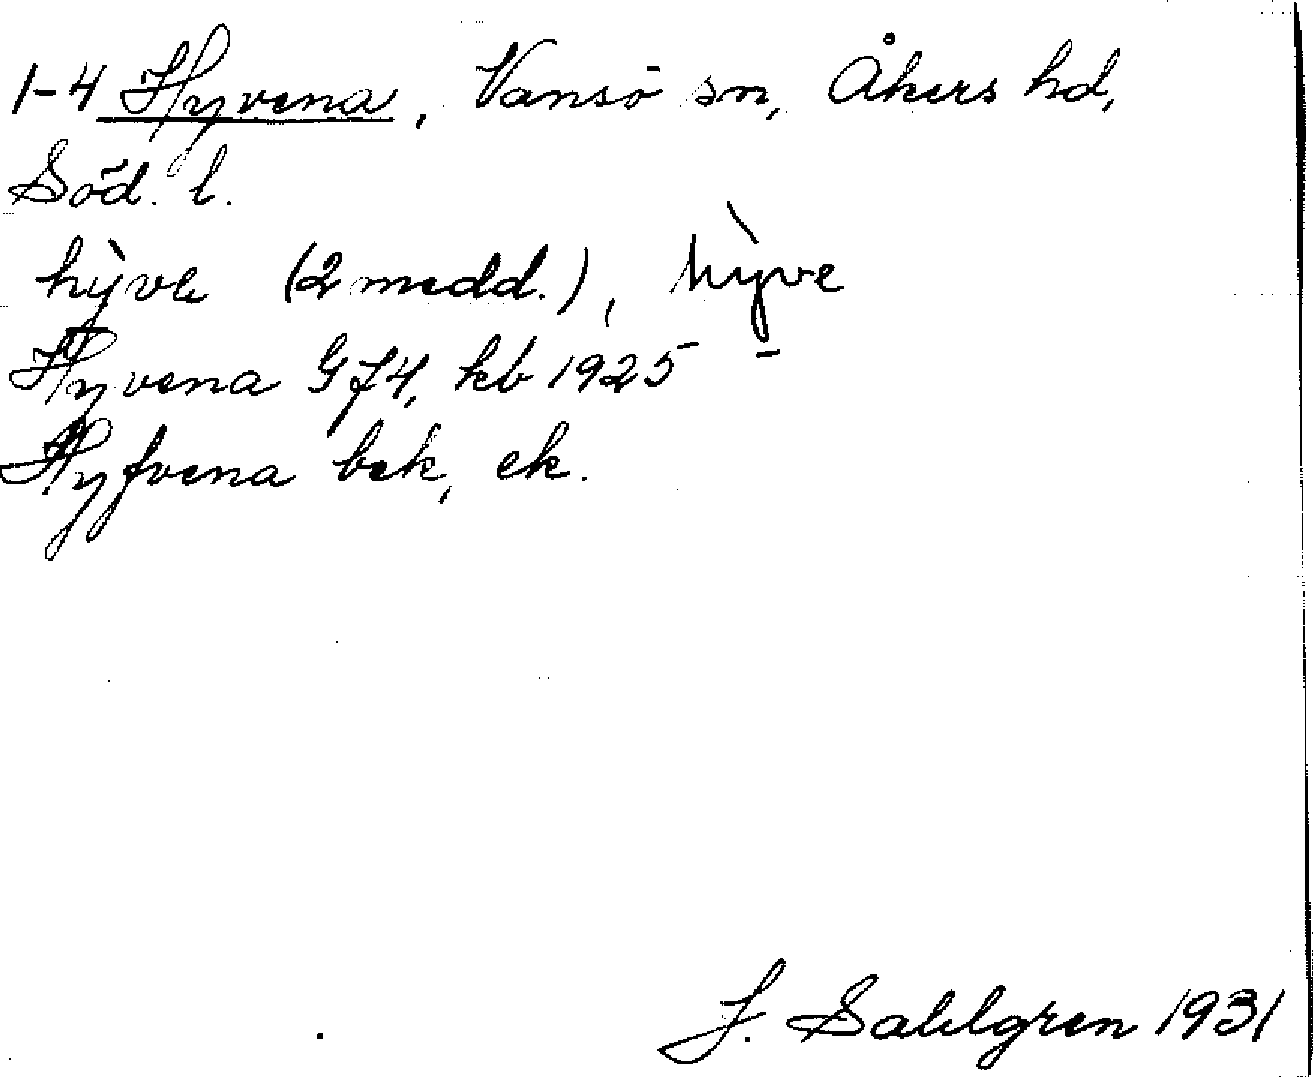 1-4 Hyvena, Vansö sn, Åkers hd,
Söd. l.
hỳve (2 medd.), hỳve
Hyvena GJ4, kb 1925
Hyfvena bek, ek.
J. Sahlgren 1931